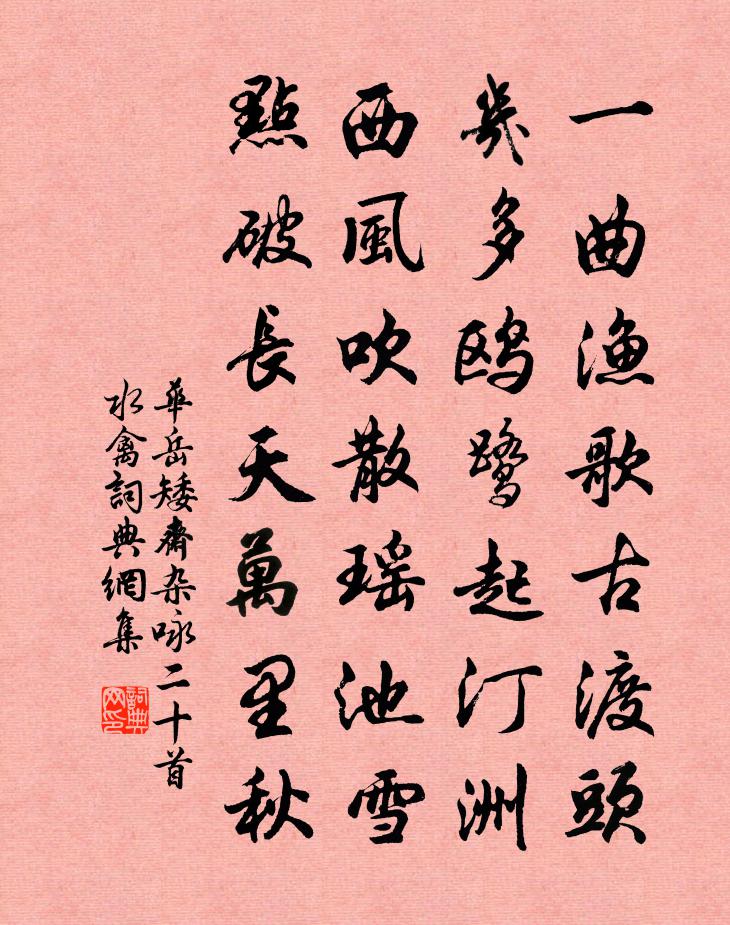 一曲漁歌古渡頭
幾多鷗鷺起汀洲
西風吹散瑶池雪
點破長天萬里秋
華岳矮齋杂咏二十首
水禽詞典網集
詞典网印